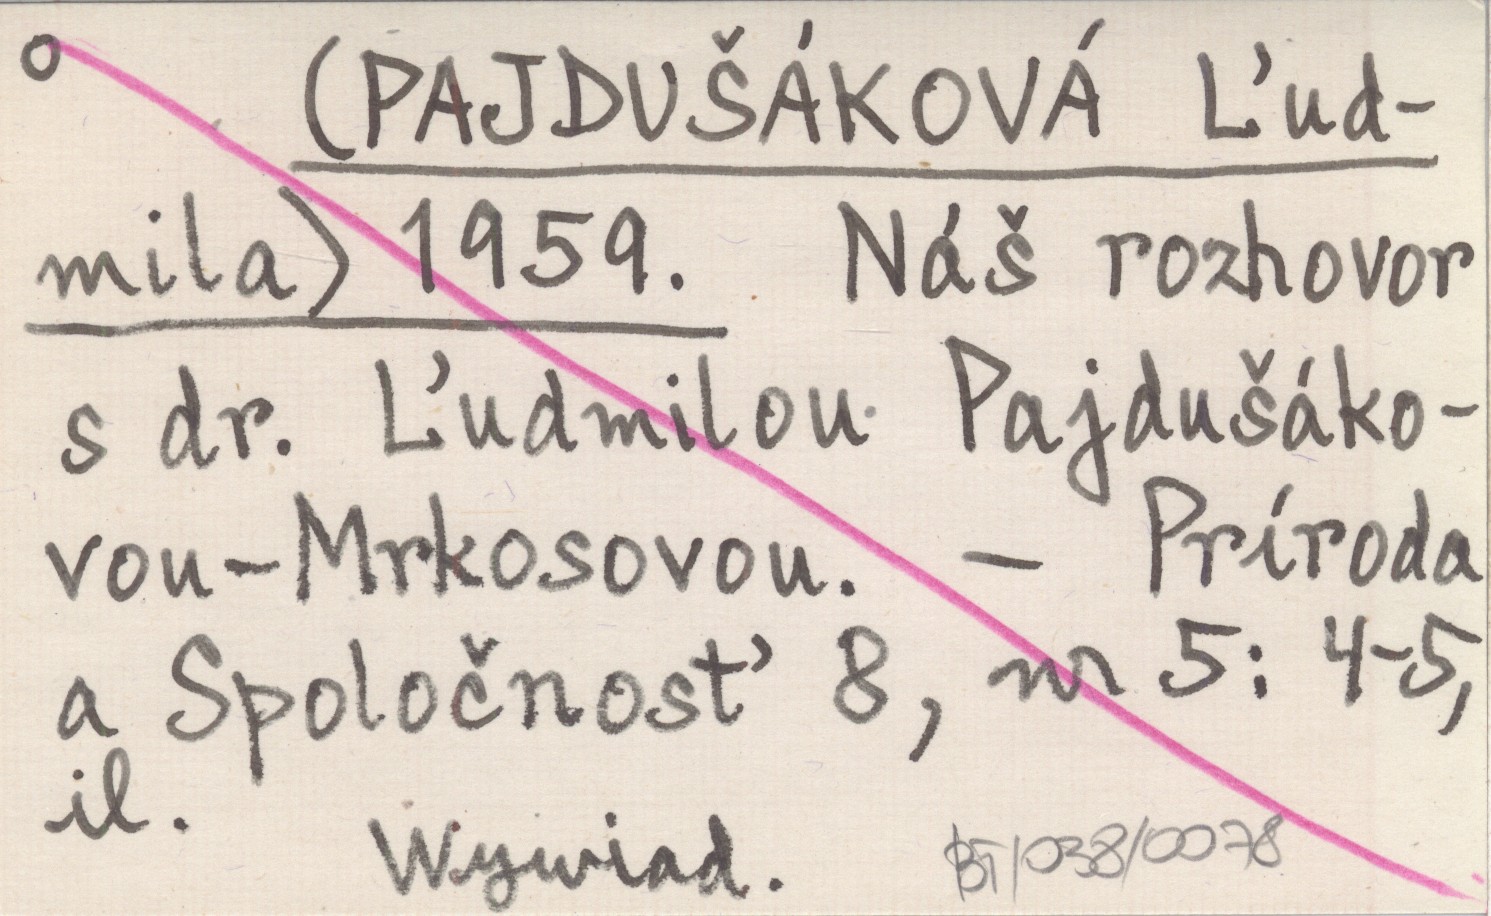 o (PAJDUŠÁKOVÁ Ľud-
mila) 1959. Náš rozhovor
s dr. Ľudmilou Pajdušáko-
vou-Mrkosovou. – Príroda
a Spoločnosť 8, nr 5: 4-5,
il.
Wywiad.
BT/038/0078